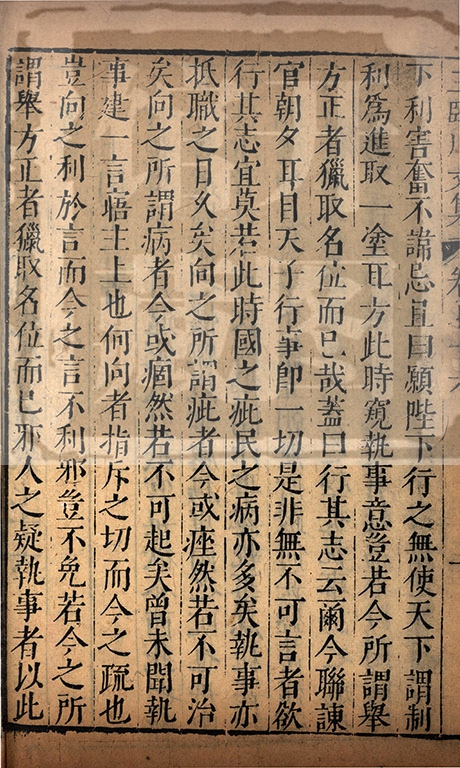 下利害奮不諱忌且曰願陛下行之無使天下謂制
利爲進取一塗耳方此時窺執事意豈若今所謂舉
方正者獵取名位而已哉蓋曰行其志云爾今聯諫
官朝夕耳目天子行事卽一切是非無不可言者欲
行其志宜莫若此時國之疵民之病亦多矣執事亦
抵職之日久矣向之所謂疵者今或痤然若不可治
矣向之所謂病者今或痼然若不可起矣曾未聞執
事建一言寤主上也何向者指斥之切而今之疏也
豈向之利於言而今之言不利邪豈不免若今之所
謂舉方正者獵取名位而已邪人之疑執事者以此